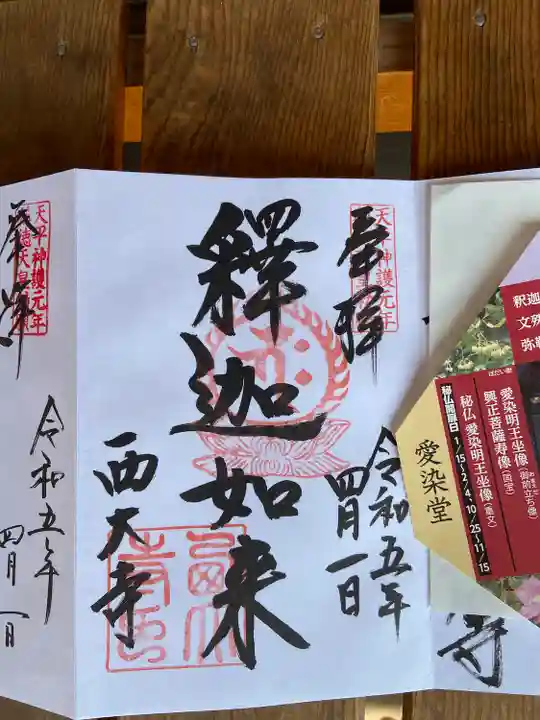 釈迦
文殊
弥勒
愛染明王坐像
(御前立ち像)
興正菩薩寿像(国宝)
秘仏 愛染明王坐像(重文)
秘仏開扉日 1/15~2/4、10/25~11/15
愛染堂
寺
天平神護元年
奉拝
令和五年
四月一日
釋迦如来
西大寺
天平神護元年
奉拝
令和五年
四月一日